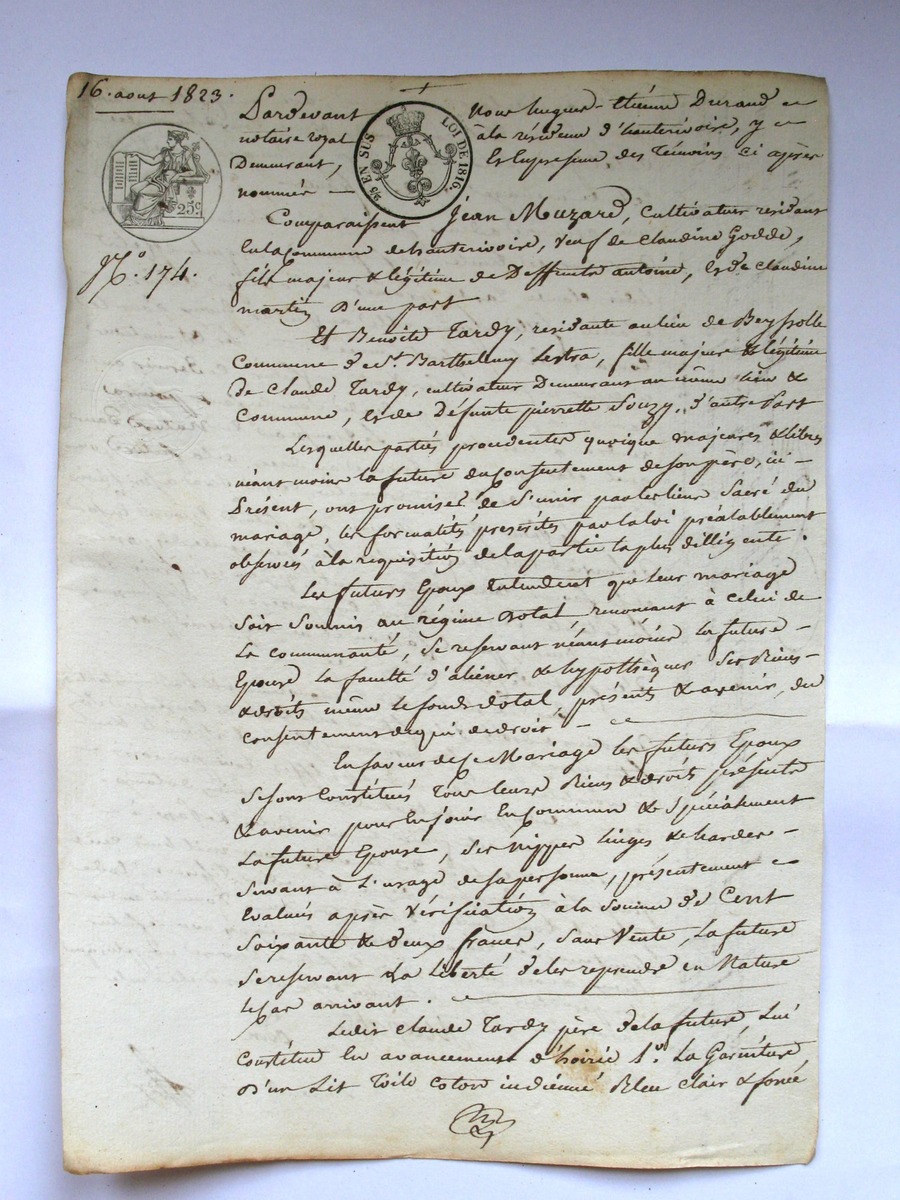 16. aout 1823.
Pardevant Nous hugue-Etiénne Durand
notaire royal à la résidence d'hauterivoire, y
Demeurant, En la présence des Témoins ci après
nommés —
25 EN SUS LOI DE 1816.
25c
No. 174.
Comparaissent Jean Muzard, cultivateur résidant
En la Commune de hauterivoire, veuf de Claudine Godde,
fils majeur & légitime de Deffunts antoine, & de Claudine
martin D'une part
Et Benoite Tardy, résidante au lieu de Beyssolle
Commune de St. Barthellmy Lestra, fille majeure & légitime
de Claude Tardy, cultivateur Demeurant au même lieu &
Commune, & de Défunte pierrette Souzy, d'autre Part
Lesquelles partiés procedentes quoique majeures & libres
néant moins la future du Consentement de son père, ici —
Présent, ont promises de s'unir par les liens Sacré du
mariage, les formalités prescrites par la loi préalablement
observées à la requisition de la partie la plus dilligente.
Les futurs Epoux Entendent que leur mariage
soit soumis au régime dotal, renoncant à celui de
La communauté, se reservant néant moins la future —
Epouse la faculté d'aliéner & hypothèquer ses Biens —
& droits même le fonds dotal, présents & avenir, du
consentement de qui de droit —
En faveur de ce Mariage les futurs Epoux
se sont Constitués Tous leurs Biens & droits présents
& avenir pour En jouir En Commun & Spécialement
La future Epouse, ses nippes linges & hardes —
servant à L'usage de sa personne, présentement
Evalués après Vérification à la Somme de Cent
soixante & deux francs, sans Vente, La future
se reservant La Liberté de les reprendre en Nature
le Cas arrivant.
Ledit Claude Tardy père de la future, Lui
Constitue En avancement d'hoirie 1o. La Garniture
D'un Lit Toile Coton indienne Bleu clair & foncé